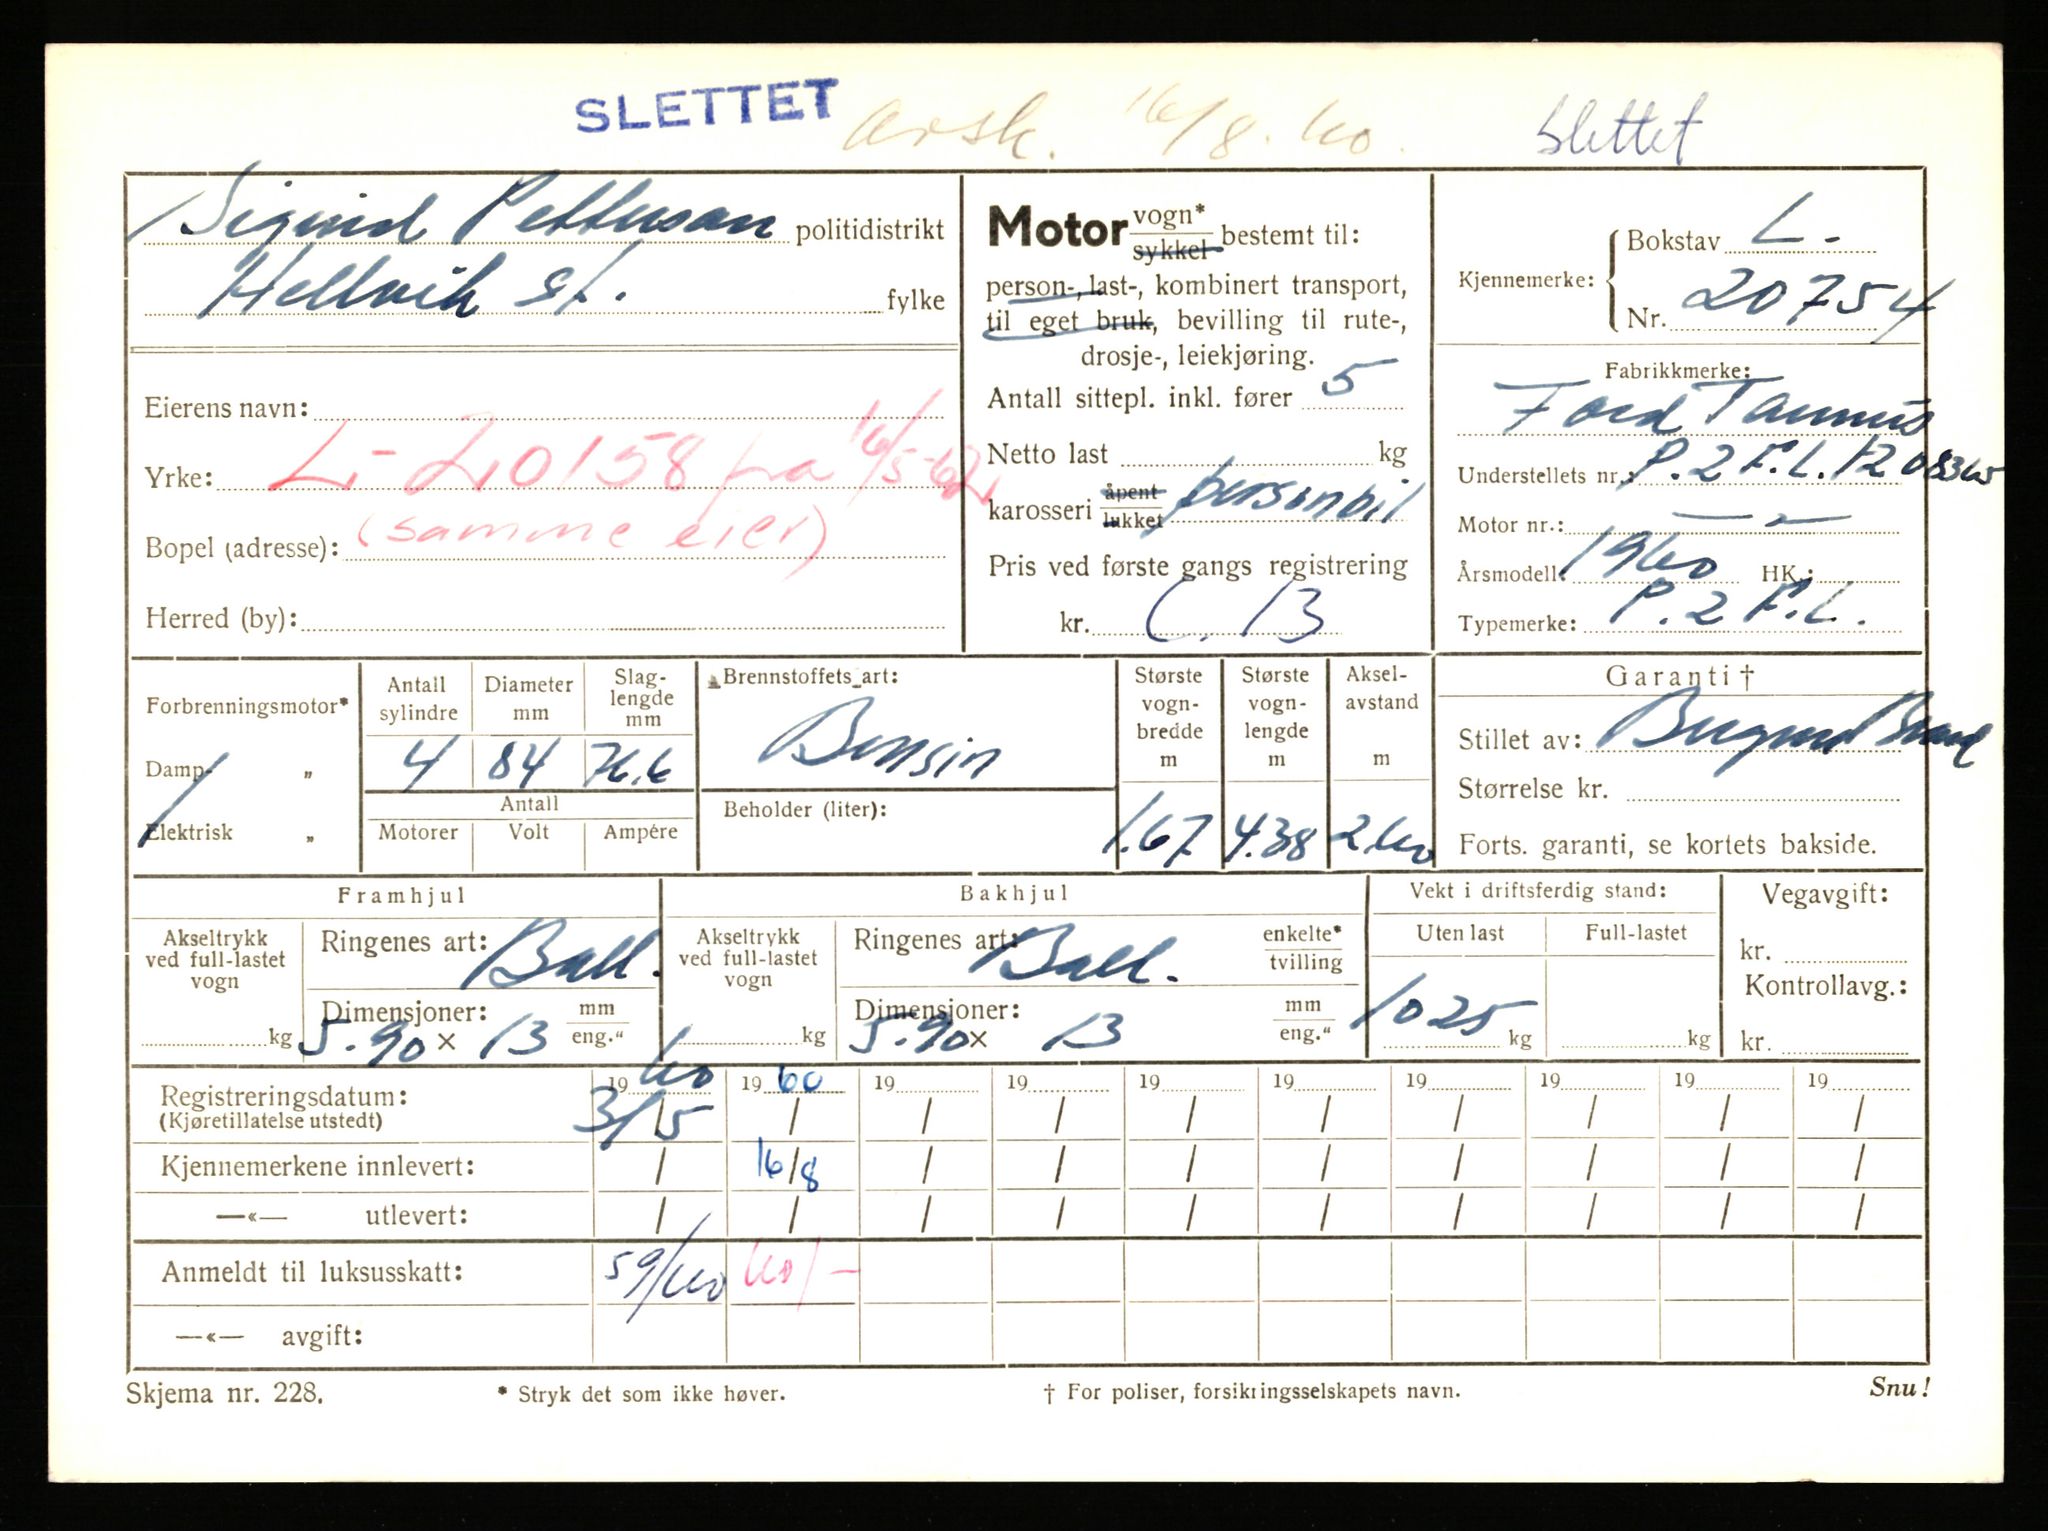 SLETTET avsk. 16/8.60. Slettet
Sigurd Pettersen politidistrikt
Hellvik st. fylke
Eierens navn:
Yrke: L-20158 fra 16/5-62
Bopel (adresse): (samme eier)
Herred (by):
Motor vogn* sykkel bestemt til:
person-, last-, kombinert transport,
til eget bruk, bevilling til rute-,
drosje-, leiekjøring.
Antall sittepl. inkl. fører 5
Netto last kg
karosseri åpent lukket personbil
Pris ved første gangs registrering
kr. C. 13
Kjennemerke: Bokstav L.
Nr. 20754
Fabrikkmerke:
Ford Taunus
Understellets nr.: P.2 F.L. 1208365
Motor nr.: — " —
Årsmodell: 1960 HK.:
Typemerke: P.2 F.L.
Forbrenningsmotor*
Damp- „
Elektrisk „
Antall sylindre Diameter mm Slag-lengde mm
4 84 76.6
Antall
Motorer Volt Ampére
Brennstoffets art:
Bensin
Beholder (liter):
Største vogn-bredde m
1.67
Største vogn-lengde m
4.38
Aksel-avstand m
2.60
Garanti †
Stillet av: Brand
Størrelse kr.
Forts. garanti, se kortets bakside.
Framhjul
Akseltrykk ved full-lastet vogn
kg
Ringenes art: Ball.
Dimensjoner: mm
5.90 x 13 eng."
Bakhjul
Akseltrykk ved full-lastet vogn
kg
Ringenes art: Ball. enkelte* tvilling
Dimensjoner: mm
5.90 x 13 eng."
Vekt i driftsferdig stand:
Uten last Full-lastet
1025 kg kg
Vegavgift:
kr.
Kontrollavg.:
kr.
19 60 19 60 19 19 19 19 19 19 19 19
Registreringsdatum: 3/5 / / / / / / / / /
(Kjøretillatelse utstedt)
Kjennemerkene innlevert: / 16/8 / / / / / / / /
—«— utlevert: / / / / / / / / / /
Anmeldt til luksusskatt: 59/60 60/-
—«— avgift:
Skjema nr. 228. * Stryk det som ikke høver. † For poliser, forsikringsselskapets navn. Snu!